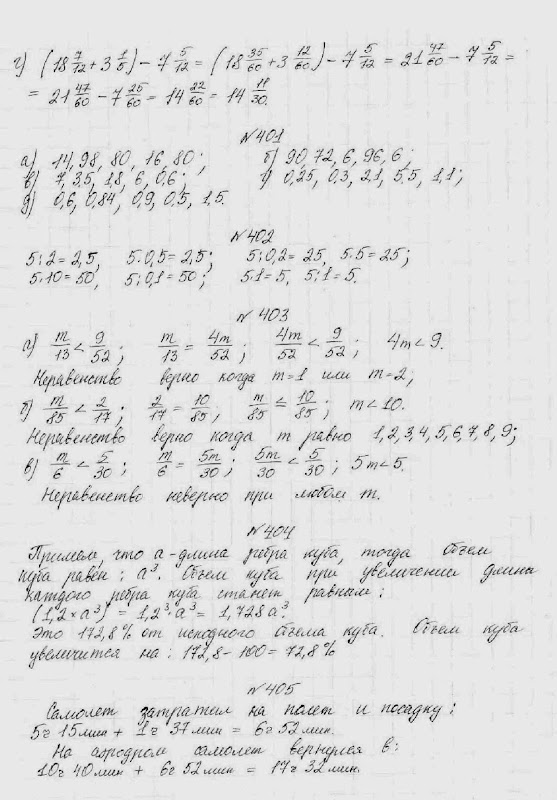 г) (18 7/12 + 3 1/5) - 7 5/12 = (18 35/60 + 3 12/60) - 7 5/12 = 21 47/60 - 7 5/12 =
= 21 47/60 - 7 25/60 = 14 22/60 = 14 11/30.
№401
а) 14, 98, 80, 16, 80; б) 90, 72, 6, 96, 6;
в) 7, 3,5, 1,8, 6, 0,6; г) 0,25, 0,3, 2,1, 5,5, 1,1;
д) 0,6, 0,84, 0,9, 0,5, 1,5.
№402
5:2=2,5, 5·0,5=2,5; 5:0,2=25, 5·5=25;
5·10=50, 5:0,1=50; 5·1=5, 5:1=5.
№403
а) m/13 < 9/52; m/13 = 4m/52; 4m/52 < 9/52; 4m<9.
Неравенство верно когда m=1 или m=2;
б) m/85 < 2/17; 2/17 = 10/85, m/85 < 10/85; m<10.
Неравенство верно когда m равно 1,2,3,4,5,6,7,8,9;
в) m/6 < 5/30; m/6 = 5m/30; 5m/30 < 5/30; 5m<5.
Неравенство неверно при любом m.
№404
Примем, что a - длина ребра куба, тогда Объем
куба равен: a³. Объем куба при увеличении длины
каждого ребра куба станет равным:
(1,2×a³) = 1,2³·a³ = 1,728a³
Это 172,8% от исходного Объема куба. Объем куба
увеличится на: 172,8-100=72,8%
№405
Самолет затратил на полет и посадку:
5ч 15мин + 1ч 37мин = 6ч 52мин.
На аэродром самолет вернулся в:
10ч 40мин + 6ч 52мин = 17ч 32мин.